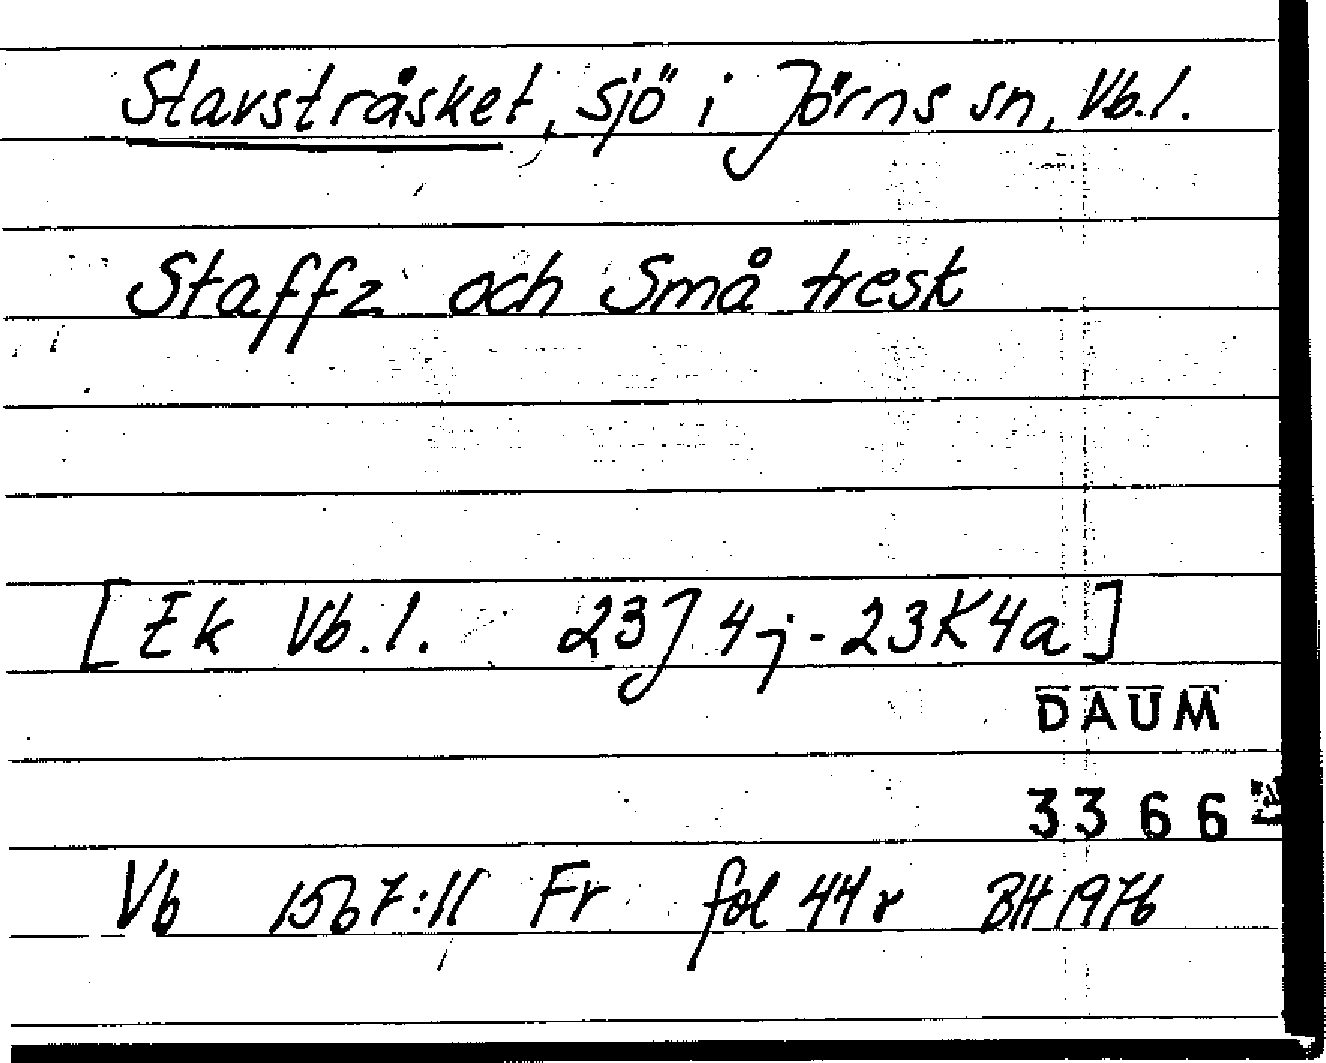 Stavsträsket, sjö i Jörns sn, Vb.l.
Staffz och Små tresk
[Ek Vb.l. 23J 4j - 23K4a]
DAUM
3366
Vb 1567:11 Fr fol 44r BH 1976